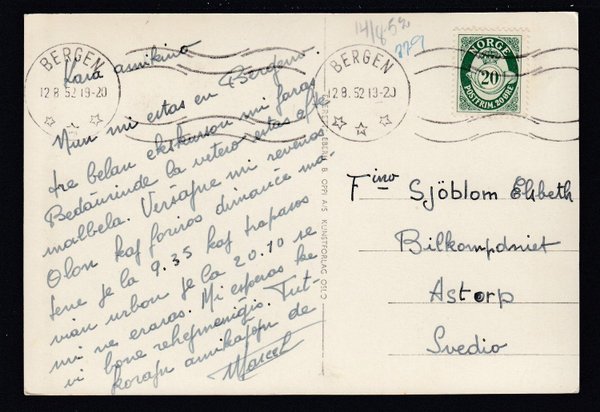 Kara amikino
Nun mi estas en Bergeno.
tre belan ekskurson mi faras
Bedaŭrinde la vetero estas ofte
malbela. Verŝajne mi revenos
Olon kaj foriros dimanĉe ma
tene je la 9.35 kaj trapasos
vian urbon je la 20.10 se
mi ne eraras. Mi esperas ke
vi bone rehejmeniĝis. Tut-
korajn amikaĵojn de
Marcel
BERGEN
12 8. 52 19-20
BERGEN
12 8. 52 19-20
14/8 52
NORGE
20
POSTFRIM. 20 ØRE
B. OPPI A/S KUNSTFORLAG OSLO
Fino Sjöblom Elsbeth
Bilkompaniet
Astorp
Svedio